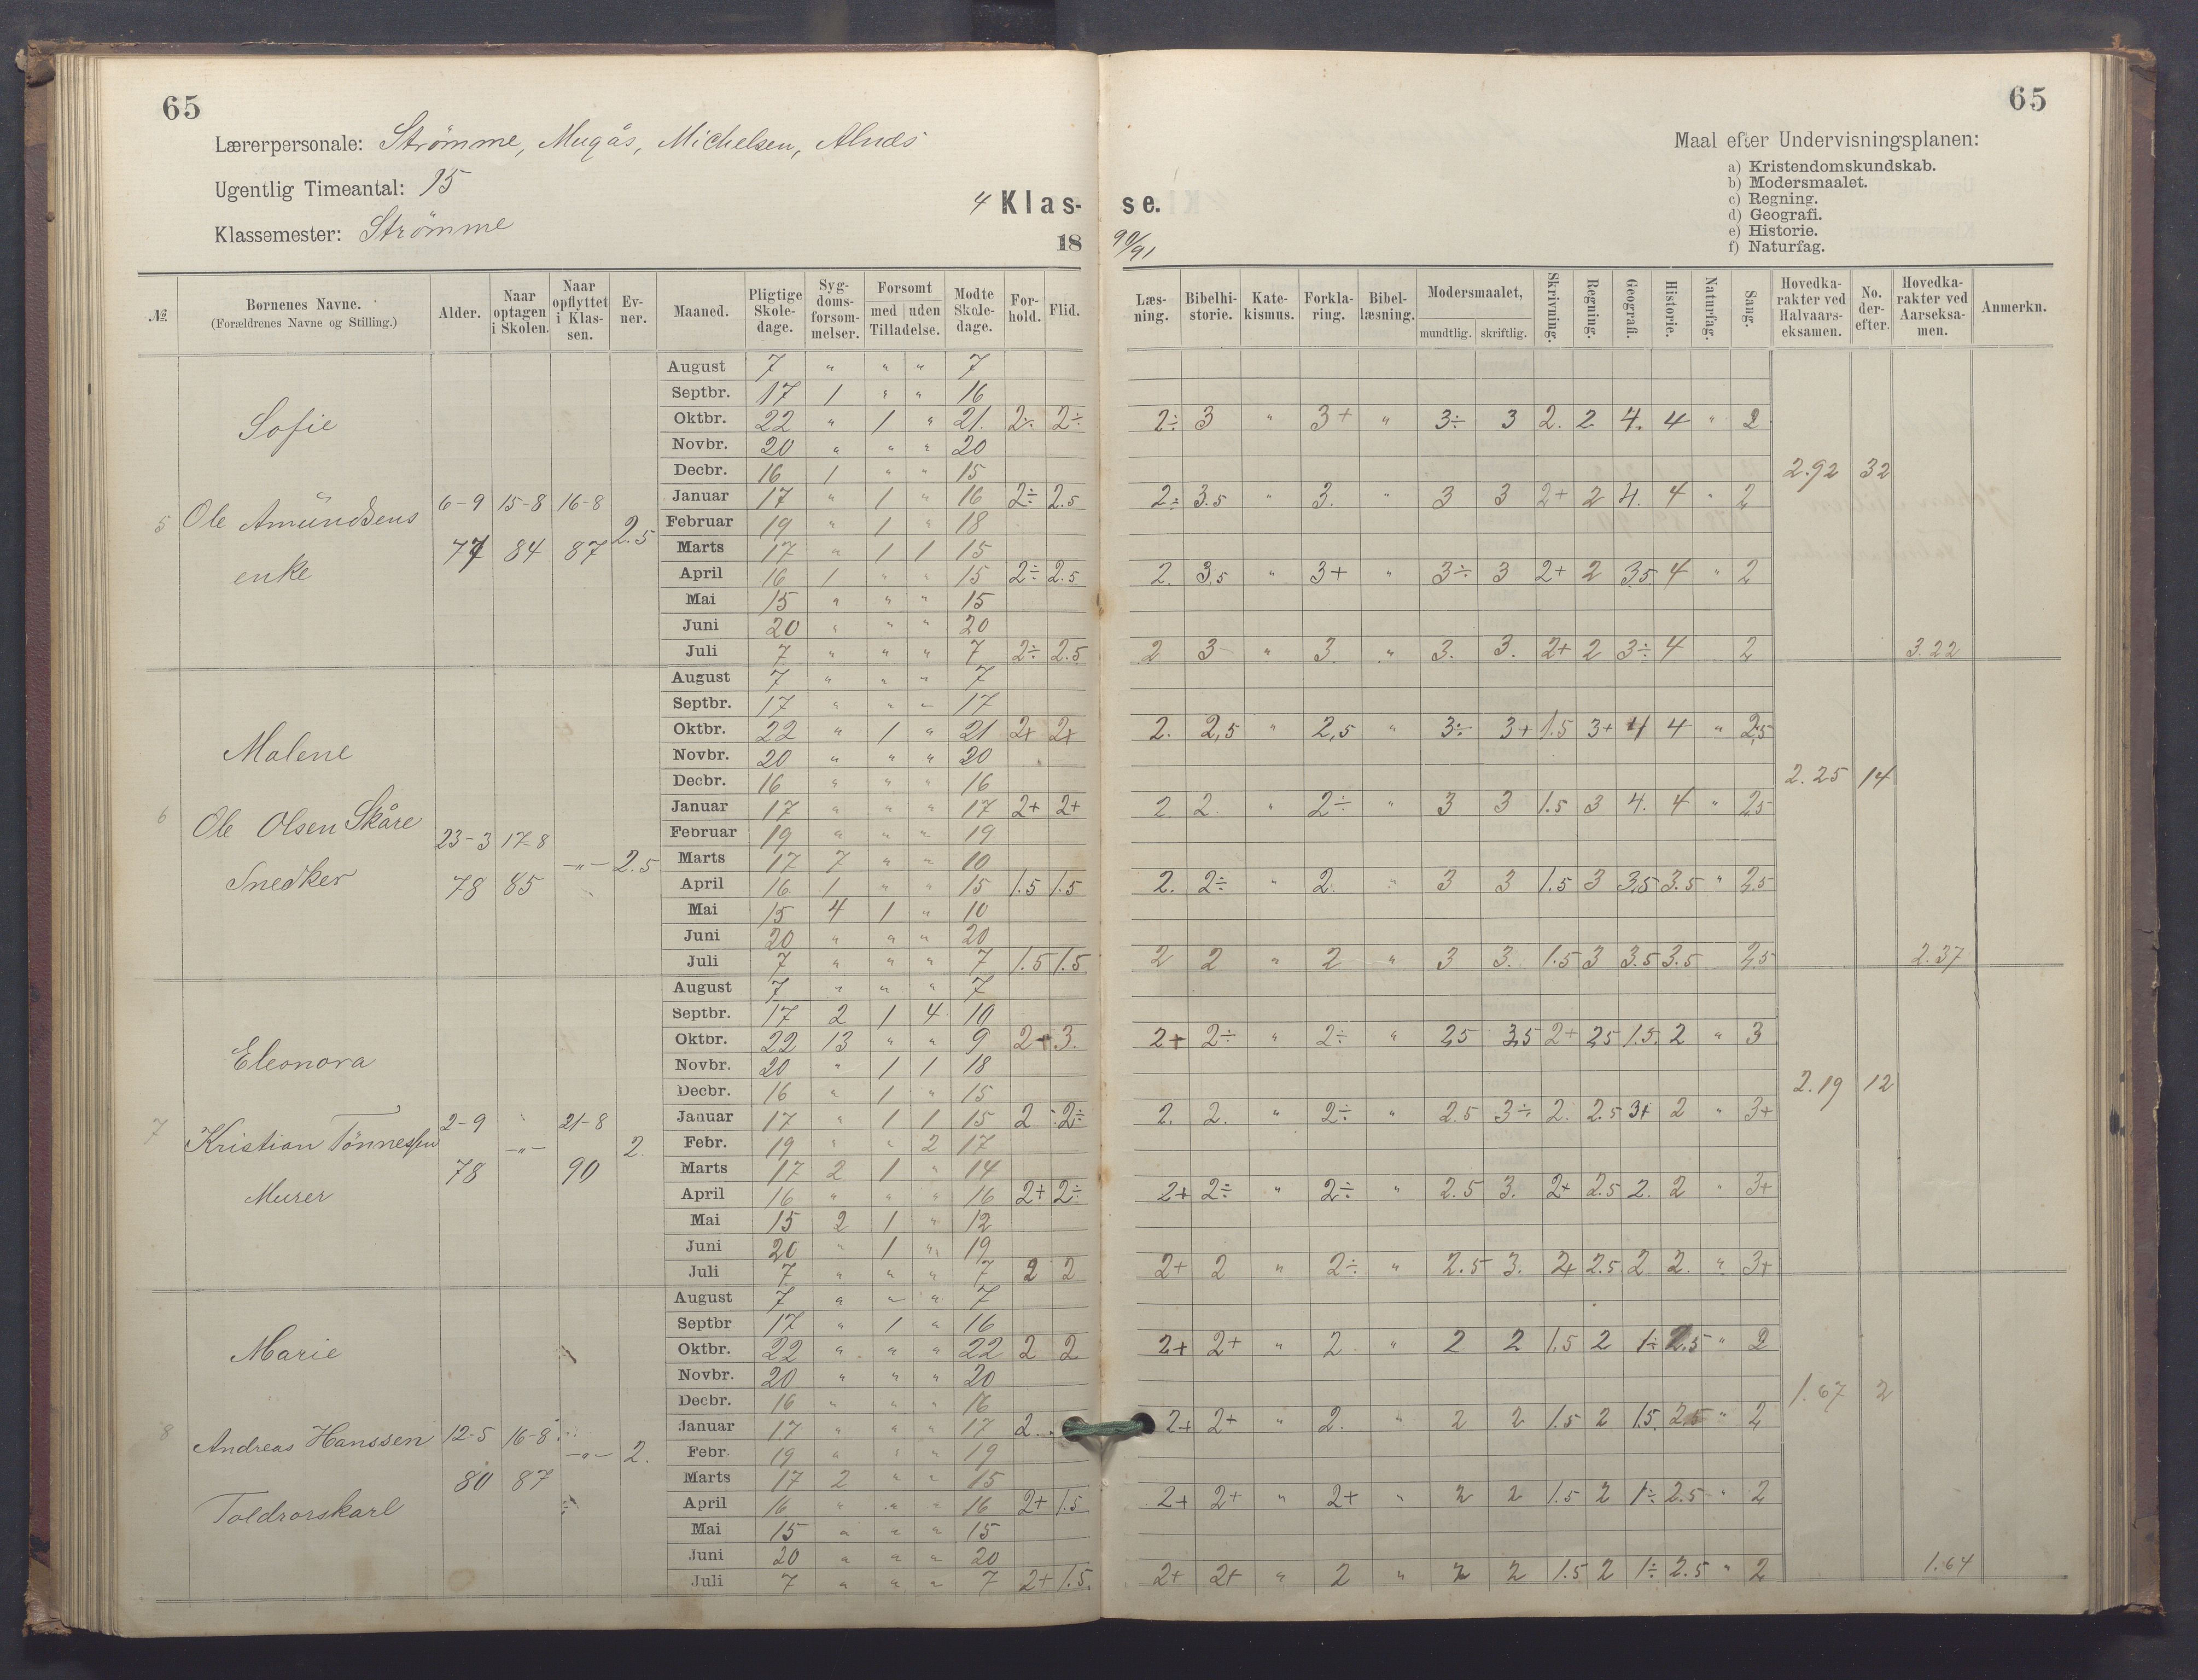 65
65
Lærerpersonale: Strömme, Mugås, Michelsen, Alnæs
Ugentlig Timeantal: 15
Klassemester: Strömme
4 Klas- se.
18 90/91
Maal efter Undervisningsplanen:
a) Kristendomskundskab.
b) Modersmaalet.
c) Regning.
d) Geografi.
e) Historie.
f) Naturfag.
№ Børnenes Navne. (Forældrenes Navne og Stilling.) Alder. Naar optagen i Skolen. Naar opflyttet i Klassen. Evner. Maaned. Pligtige Skoledage. Sygdomsforsommelser. Forsomt med uden Tilladelse. Mødte Skoledage. Forhold. Flid. Læsning. Bibelhistorie. Katekismus. Forklaring. Bibellæsning. Modersmaalet, mundtlig. skriftlig. Skrivning. Regning. Geografi. Historie. Naturfag. Sang. Hovedkarakter ved Halvaarseksamen. No. derefter. Hovedkarakter ved Aarseksamen. Anmerkn.
5 Sofie
Ole Amundsens
enke
6-9 77 15-8 84 16-8 87 2.5
August 7 " " " 7
Septbr. 17 1 " " 16
Oktbr. 22 " 1 " 21. 2÷ 2÷ 2÷ 3 " 3+ " 3÷ 3 2. 2 4. 4 " 2
Novbr. 20 " " " 20
Decbr. 16 1 " " 15 2.92 32
Januar 17 " 1 " 16 2÷ 2.5 2÷ 3.5 " 3. " 3 3 2+ 2 4. 4 " 2
Februar 19 " 1 " 18
Marts 17 " 1 1 15
April 16 1 " " 15 2÷ 2.5 2. 3,5 " 3+ " 3÷ 3 2+ 2 3.5 4 " 2
Mai 15 " " " 15
Juni 20 " " " 20
Juli 7 " " " 7 2÷ 2.5 2 3 " 3. " 3. 3. 2+ 2 3÷ 4 2 3.22
6 Malene
Ole Olsen Skåre
Snedker
23-3 78 17-8 85 -"- 2.5
August 7 " " " 7
Septbr. 17 " " " 17
Oktbr. 22 " 1 " 21 2+ 2+ 2. 2,5 " 2,5 " 3÷ 3+ 1.5 3+ 4 4 " 2,5
Novbr. 20 " " " 20
Decbr. 16 " " " 16 2.25 14
Januar 17 " " " 17 2+ 2+ 2. 2. " 2÷ " 3 3 1.5 3 4. 4 " 2,5
Februar 19 " " " 19
Marts 17 7 " " 10
April 16 1 " " 15 1.5 1.5 2. 2÷ " 2. " 3 3 1.5 3 3,5 3.5 " 2,5
Mai 15 4 1 " 10
Juni 20 " " " 20
Juli 7 " " " 7 1.5 1.5 2 2 " 2 " 3 3. 1.5 3 3.5 3.5 2,5 2.37
7 Eleonora
Kristian Tönnessen
Murer
2-9 78 -"- 21-8 90 2.
August 7 " " " 7
Septbr. 17 2 1 4 10
Oktbr. 22 13 " " 9 2+ 3. 2+ 2÷ " 2÷ " 2,5 3,5 2+ 2,5 1.5. 2 " 3
Novbr. 20 " 1 1 18
Decbr. 16 " 1 " 15 2.19 12
Januar 17 " 1 1 15 2 2÷ 2. 2. " 2÷ " 2.5 3÷ 2. 2.5 3+ 2 " 3+
Febr. 19 " " 2 17
Marts 17 2 1 " 14
April 16 " " " 16 2+ 2÷ 2+ 2÷ " 2÷ " 2.5 3. 2+ 2.5 2. 2 " 3+
Mai 15 2 1 " 12
Juni 20 " 1 " 19
Juli 7 " " " 7 2 2 2+ 2 " 2÷ " 2.5 3. 2+ 2.5 2 2. " 3+
8 Marie
Andreas Hanssen
Toldrorskarl
12-5 80 16-8 87 -"- 2.
August 7 " " " 7
Septbr 17 " 1 " 16
Oktbr. 22 " " " 22 2 2 2+ 2+ " 2 " 2 2 1.5 2 1÷ 2.5 " 2
Novbr. 20 " " " 20
Decbr. 16 " " " 16 1.67 2
Januar 17 " " " 17 2. 2+ 2+ " 2. " 2 2 1.5 2 1.5. 2.5 " 2
Febr. 19 " " " 19
Marts 17 2 " " 15
April 16 " " " 16 2+ 1.5 2+ 2+ " 2+ " 2 2 1.5 2 1÷ 2.5 " 2
Mai 15 " " " 15
Juni 20 " " " 20
Juli 7 " " " 7 2+ 1.5. 2+ 2+ " 2 " 2 2 1.5 2 1÷ 2.5 " 2 1.64